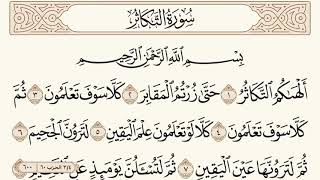 سُورَةُ التَّكَاثُرِ
بِسْمِ اللَّهِ الرَّحْمَٰنِ الرَّحِيمِ
أَلْهَىٰكُمُ التَّكَاثُرُ ١ حَتَّىٰ زُرْتُمُ الْمَقَابِرَ ٢ كَلَّا سَوْفَ تَعْلَمُونَ ٣ ثُمَّ
كَلَّا سَوْفَ تَعْلَمُونَ ٤ كَلَّا لَوْ تَعْلَمُونَ عِلْمَ الْيَقِينِ ٥ لَتَرَوُنَّ الْجَحِيمَ ٦
ثُمَّ لَتَرَوُنَّهَا عَيْنَ الْيَقِينِ ٧ ثُمَّ لَتُسْـَٔلُنَّ يَوْمَئِذٍ عَنِ النَّعِيمِ
٦٠٠ الحزب ٦٠